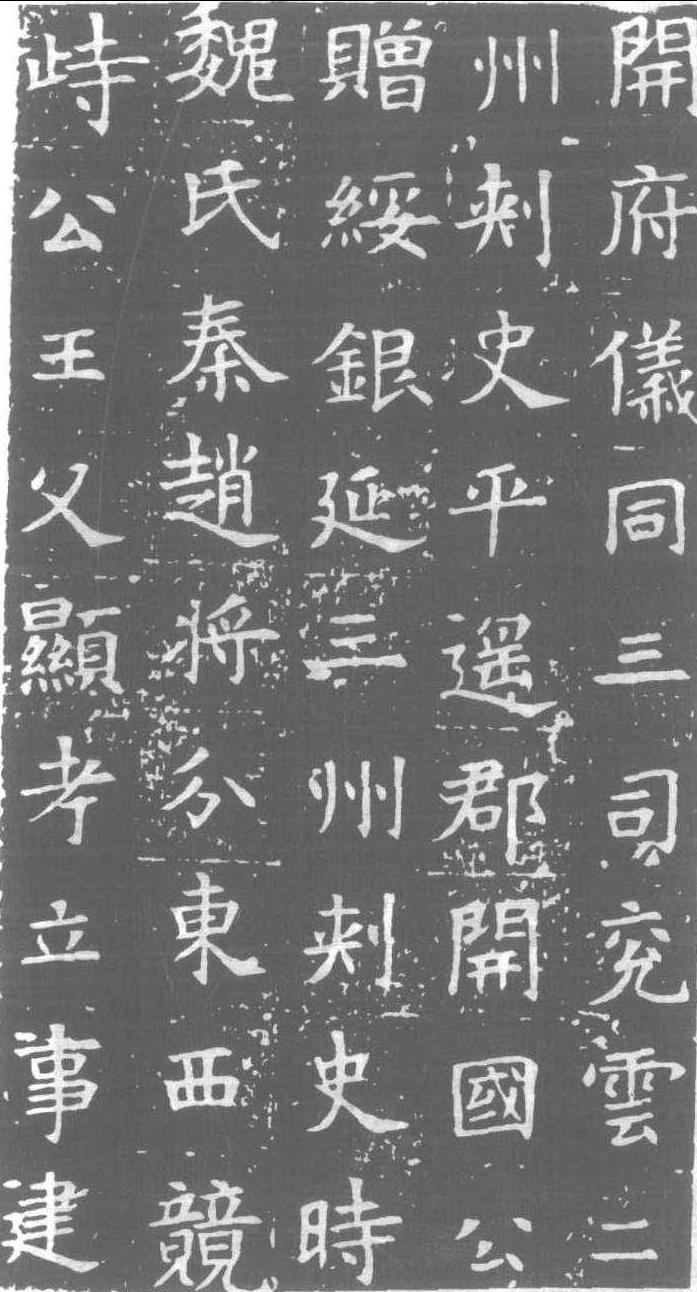 開府儀同三司兖雲二
州刺史平遥郡開國公
贈綏銀延三州刺史時
魏氏秦趙將分東西競
峙公王父顯考立事建